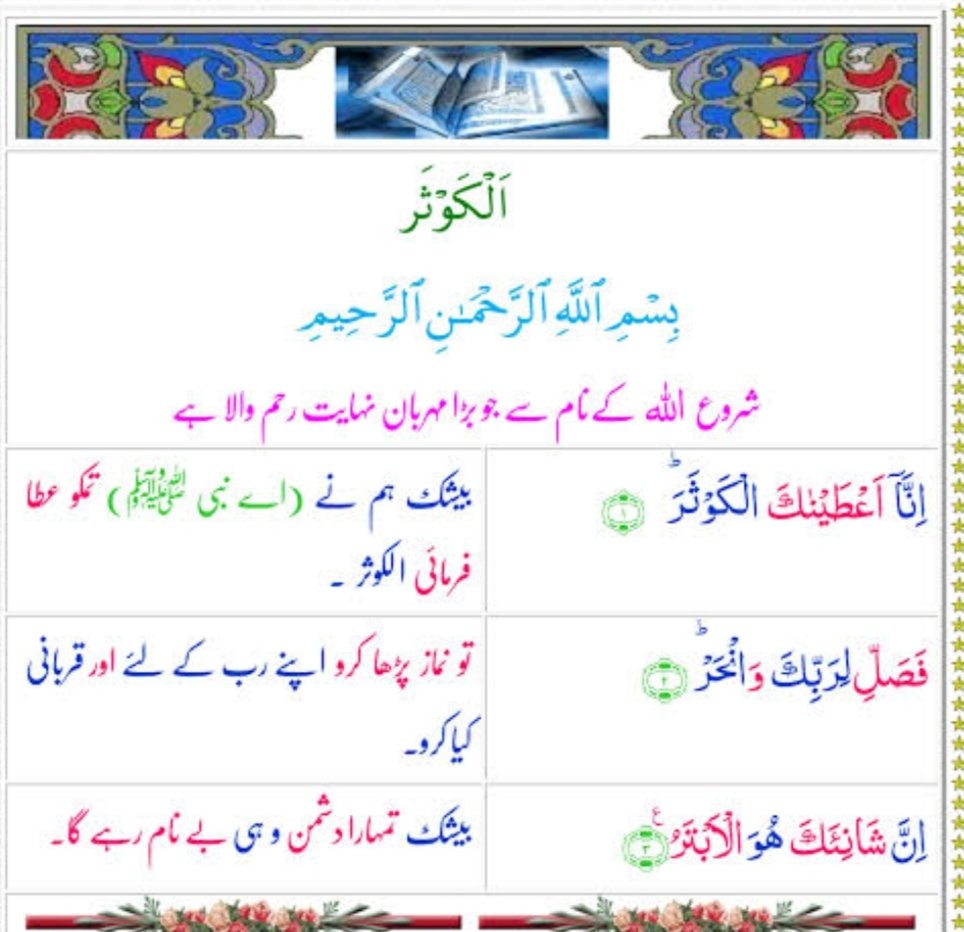 اَلْكَوْثَر
بِسْمِ ٱللَّهِ ٱلرَّحْمَـٰنِ ٱلرَّحِيمِ
شروع اللہ کے نام سے جو بڑا مہربان نہایت رحم والا ہے
اِنَّاۤ اَعْطَيْنٰكَ الْكَوْثَرَ ؕ ۝۱
بیشک ہم نے (اے نبی ﷺ) تمکو عطا
فرمائی الکوثر ۔
فَصَلِّ لِرَبِّكَ وَانْحَرْ ؕ ۝۲
تو نماز پڑھا کرو اپنے رب کے لئے اور قربانی
کیا کرو۔
اِنَّ شَانِئَكَ هُوَ الْاَبْتَرُ ۝۳ ع
بیشک تمہارا دشمن وہی بے نام رہے گا۔